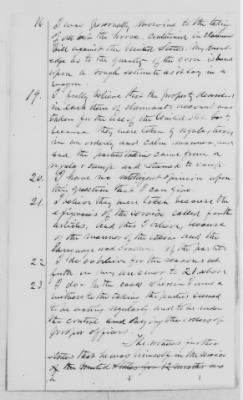 16 I was personally knowing to the taking
of all the horse, contained in claimants
bill against the United States. My know-
ledge as to the quantity of the corn is based
upon a rough estimate as it lay in a
wagon.
19. I firmly believe that the property described
in each item of claimants account was
taken for the use of the United States
because they were taken by
in an orderly and calm manner and
and the parties taking came from a
camp and returned to camp.
20. I have no intelligent opinion upon
this question that I can give.
21. I believe they were taken because the
exigencies of the service called for the
articles. And this I believe, because
of the manner of the taken and the
of the parties
22. I do so believe for the reasons set
forth in my answer to 21 above
23. I do. In the cases wherein I was a
witness to the taking the parties seemed
to be acting regularly and to be under
the control and the orders of
proper officers.
The witness further
states that he was himself in the service
of the United States for 12 months as
a